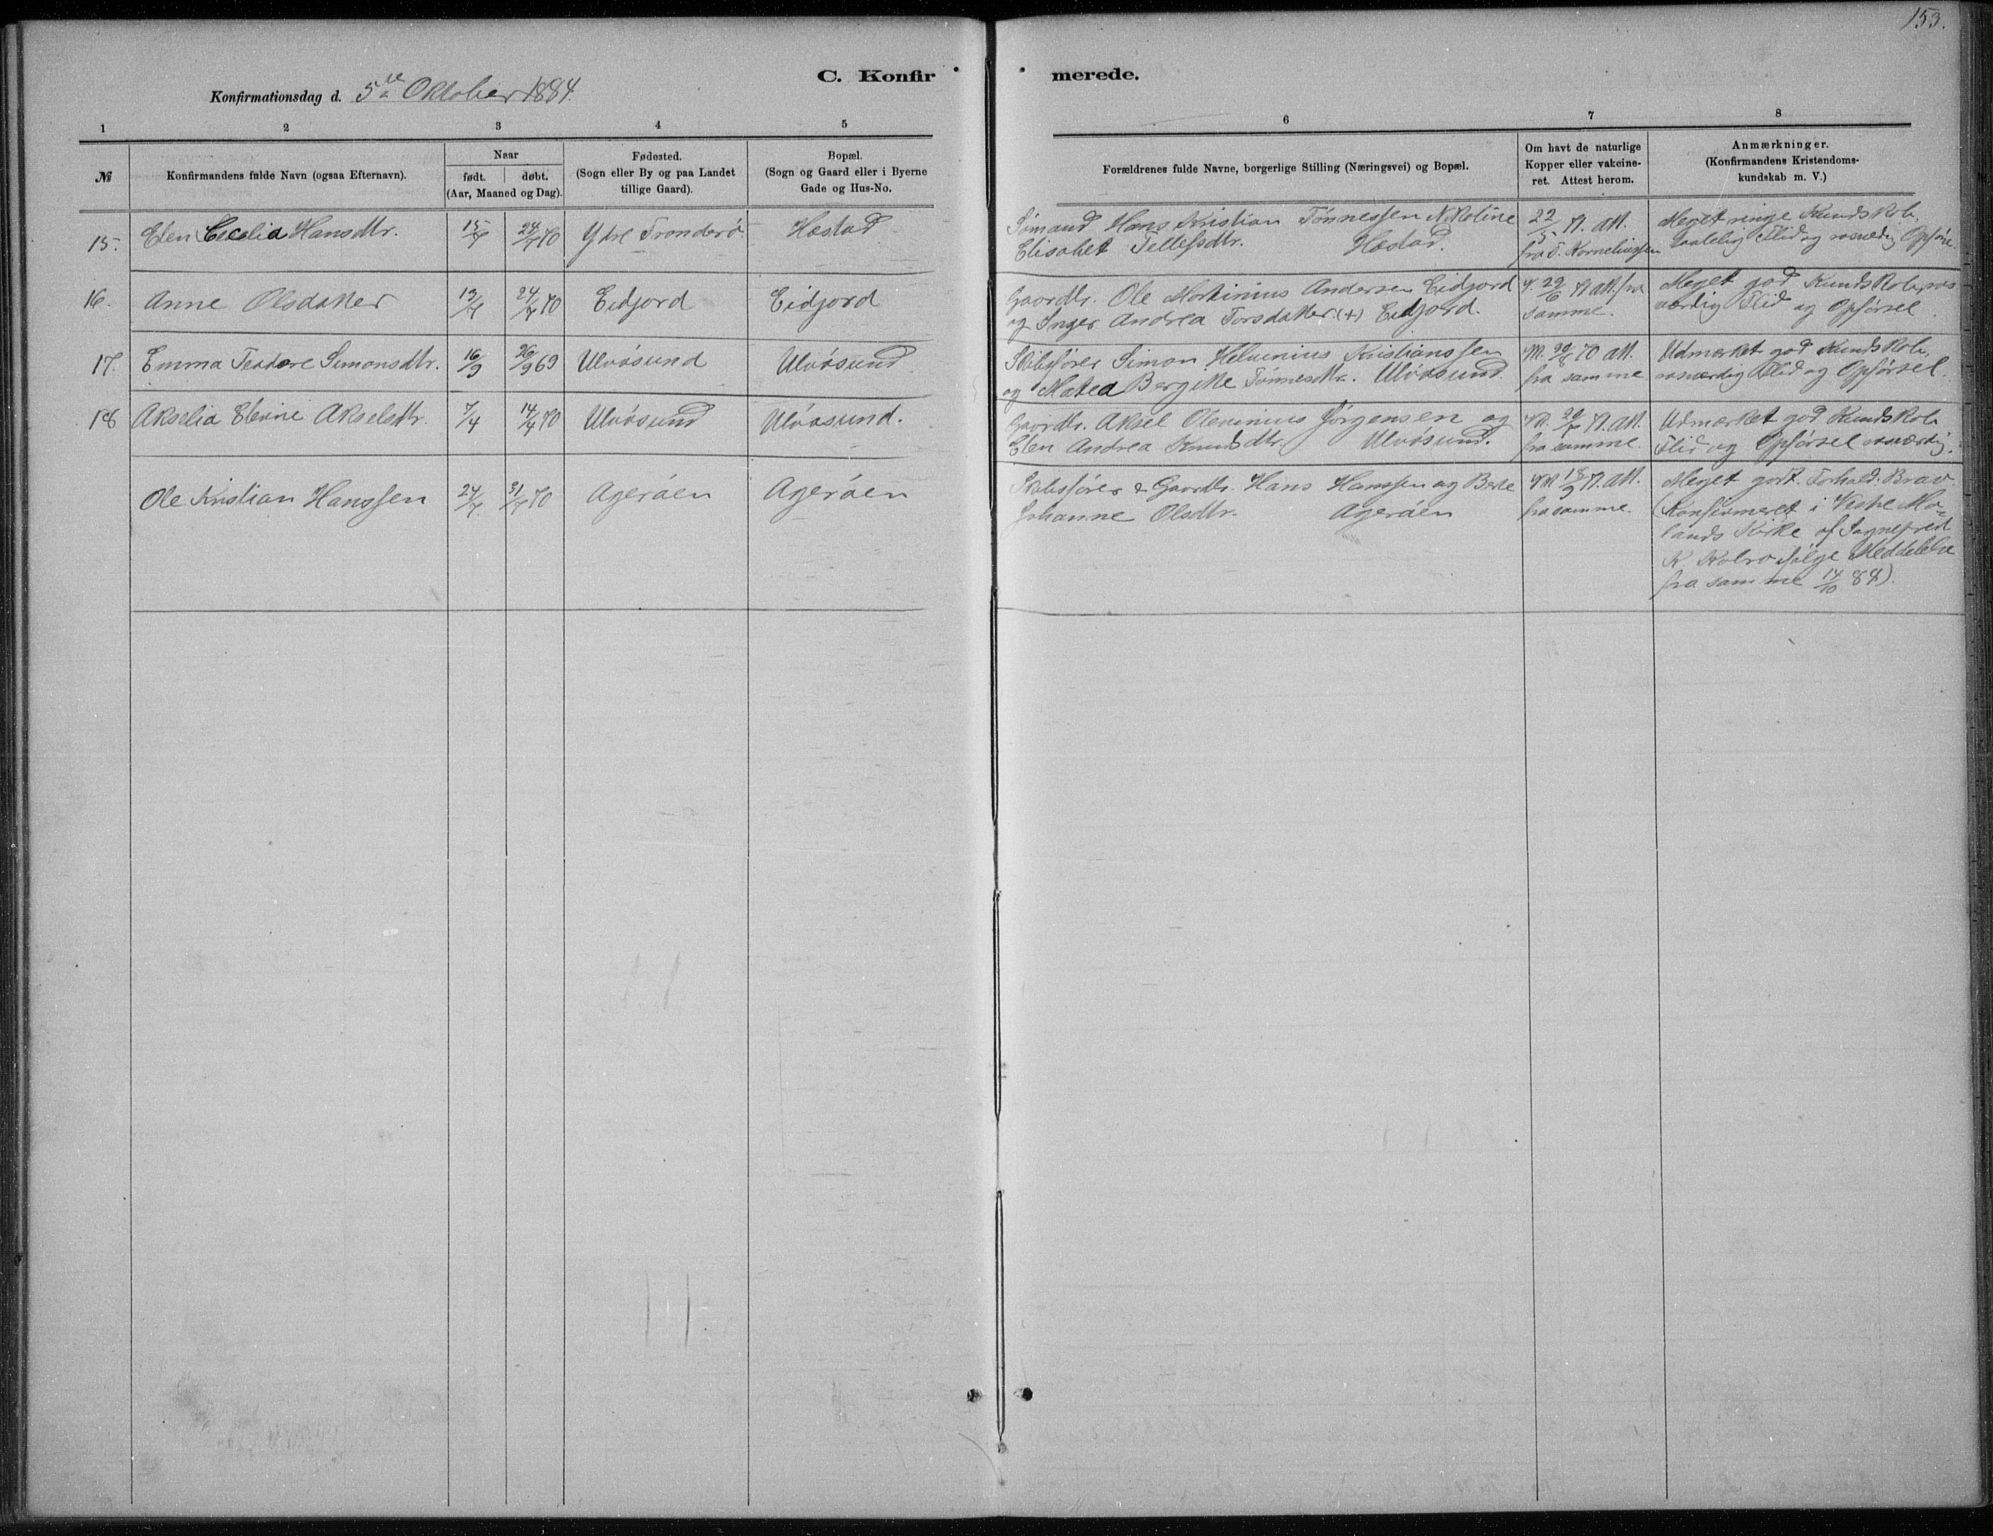 153.
C. Konfirmerede.
Konfirmationsdag d. 5te Oktober 1884.
1 2 3 4 5 6 7 8
№
Konfirmandens fulde Navn (ogsaa Efternavn).
Naar
født. døbt.
(Aar, Maaned og Dag).
Fødested.
(Sogn eller By og paa Landet
tillige Gaard).
Bopæl.
(Sogn og Gaard eller i Byerne
Gade og Hus-No.
Forældrenes fulde Navne, borgerlige Stilling (Næringsvei) og Bopæl.
Om havt de naturlige
Kopper eller vakcine-
ret. Attest herom.
Anmærkninger.
(Konfirmandens Kristendoms-
kundskab m. V.)
15. Elen Cecelia Hansdtr. 24/7 70 Ydre Tronderö Hæstad
Sømand Hans Kristian Tønnessen N. Roline
Elisabet Tellefsdtr. Hæstad.
22/5 71 att.
fra T. Kornelinssen
Meget ringe Kundskab.
Flid og rosværdig Opførs
16. Anne Olsdatter 24/7 70 Eidjord Eidjord
Gaardbr. Ole Mortinius Andersen Eidjord
og Inger Andrea Torsdatter (+) Eidjord.
71 att. fra
samme.
Meget god Kundskab, ros
værdig Flid og Opførsel.
17. Emma Teodore Simonsdtr. 16/9 26/9 69 Ulvösund Ulvösund
Skibsfører Simon Helvinius Kristianssen
og Matea Bergitte Tønnesdtr. Ulvösund.
70 att.
fra samme
Udmærket god Kundskab,
rosværdig Flid og Opførsel.
18 Akselia Elvine Akselsdtr. 7/4 14/4 70 Ulvösund Ulvösund.
Gaardbr. Aksel Olevinius Jørgensen og
Elen Andrea Knudsdtr. Ulvösund.
71 att.
fra samme.
Udmærket god Kundskab
Flid og Opførsel rosværdig.
Ole Kristian Hanssen 24/7 31/7 70 Ageröen Ageröen
Skibsfører & Gaardbr. Hans Hanssen og Berte
Johanne Olsdtr. Ageröen
18/9 71. att.
fra samme.
Meget godt. Forhold. Brav.
(Konfirmeret i Vestre Mo-
lands Kirke af Sognepræst
K. Kolro ifølge Meddelelse
fra samme 14/10 84).